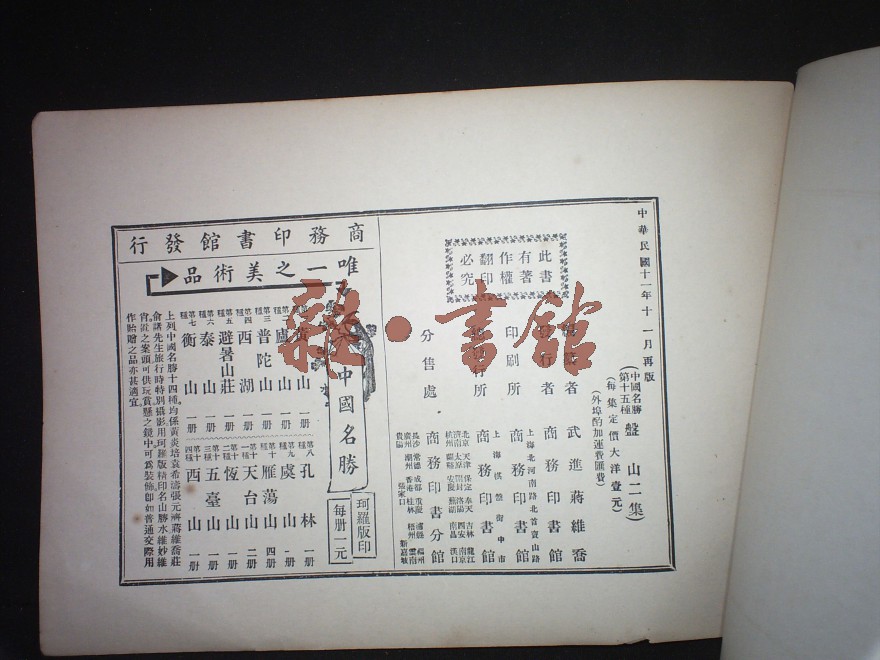 中華民國十一年十一月再版
中國名勝
第十五種
盤山二集
(每集定價大洋壹元)
(外埠酌加運費匯費)
此書
有著
作權
翻印
必究
者 武進蔣維喬
發行者 商務印書館
上海北河南路北首寶山路
印刷所 商務印書館
上海棋盤街中市
行所 商務印書館
分售處
北京 天津 保定 奉天 吉林 龍江
濟南 太原 開封 洛陽 西安 南京
杭州 安慶 蕪湖 南昌 漢口
長沙 常德 成都 重慶 福州
廣州 潮州 香港 桂林 梧州 雲南
貴陽 張家口 新嘉坡
商務印書分館
商務印書館發行
唯一之美術品
中國名勝
珂羅版印
每册一元
黃山 一册
廬山 一册
第三種 普陀山 一册
第四種 西湖 一册
第五種 避暑山莊 一册
第六種 泰山 一册
第七種 衡山 一册
第八種 孔林 一册
第九種 虞山 一册
第十種 雁蕩山 四册
第十一種 天台山 二册
第十二種 恆山 一册
第十三種 五臺山 一册
第十四種 西山 一册
上列中國名勝十四種均係黃炎培袁希濤張元濟蔣維喬莊
俞諸先生旅行時特別攝影用珂羅版精印名山勝水維妙維
肖置之案頭可供玩賞懸之鏡中可爲裝飾卽如普通交際用
作貽贈之品亦甚適宜
雜·書館